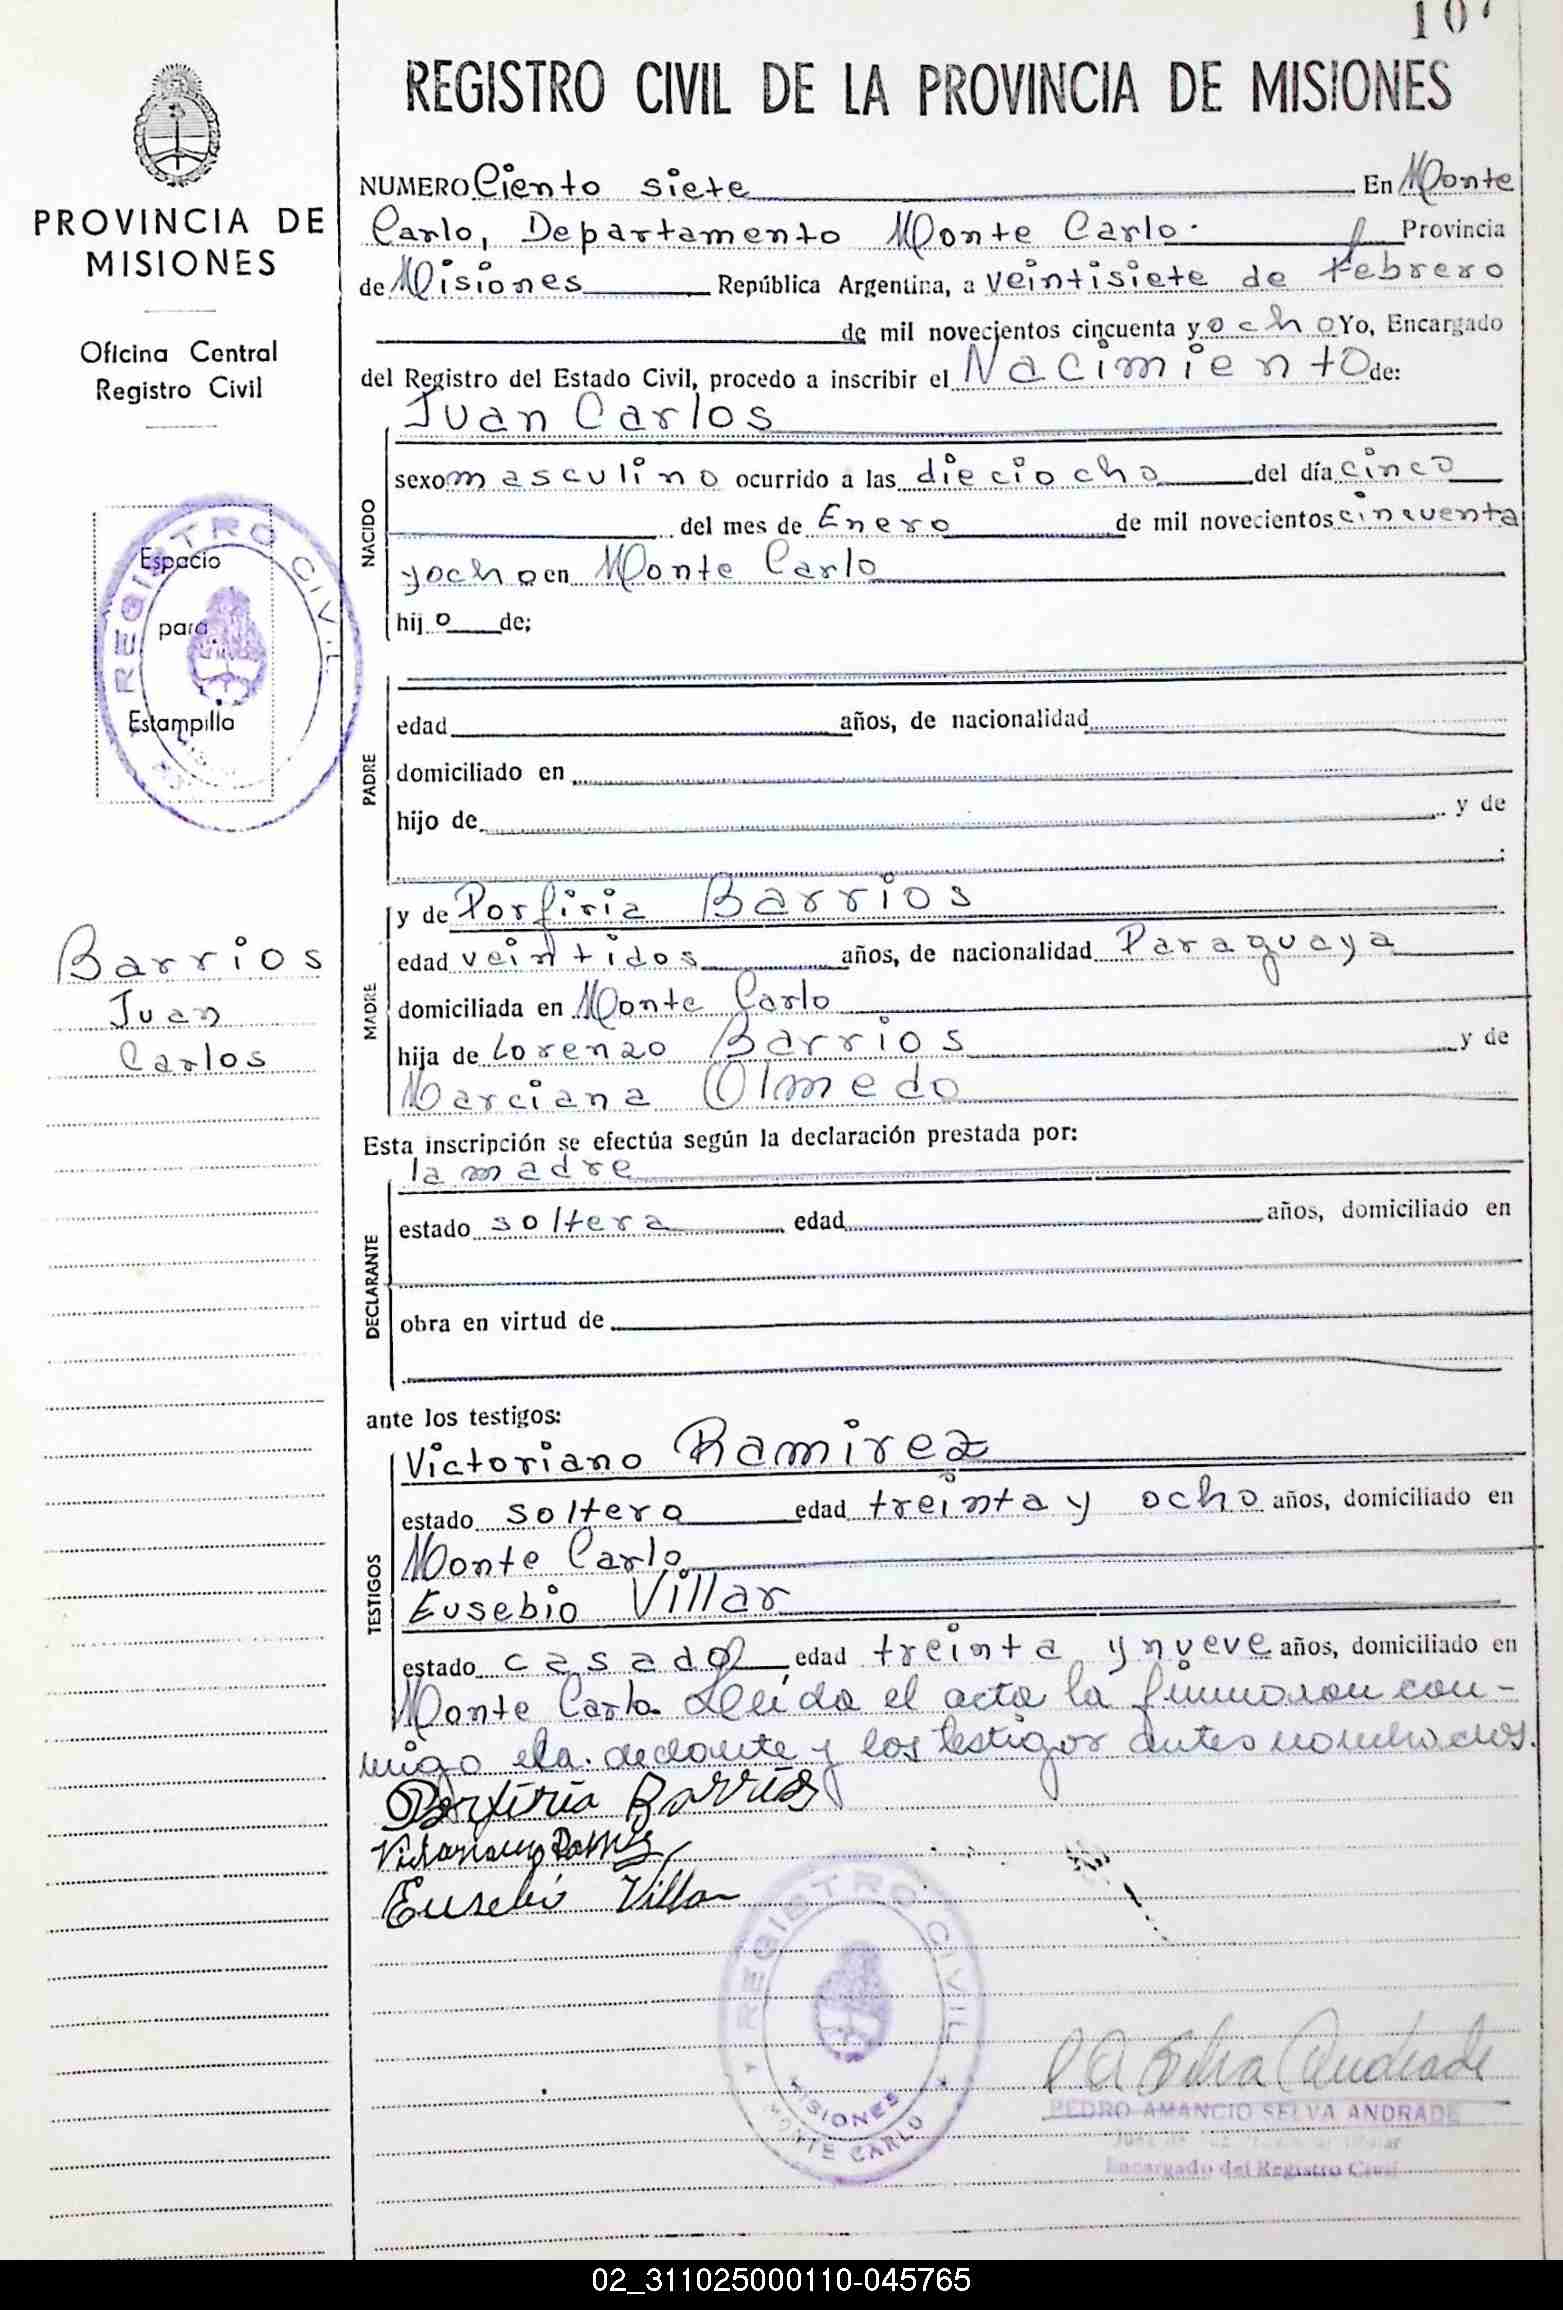 107
REGISTRO CIVIL DE LA PROVINCIA DE MISIONES
PROVINCIA DE
MISIONES
Oficina Central
Registro Civil
Espacio
para
Estampilla
REGISTRO CIVIL
Barrios
Juan
Carlos
NUMERO Ciento siete En Monte
Carlo, Departamento Monte Carlo. Provincia
de Misiones República Argentina, a veintisiete de Febrero
de mil novecientos cincuenta y ocho Yo, Encargado
del Registro del Estado Civil, procedo a inscribir el Nacimiento de:
Juan Carlos
NACIDO
sexo masculino ocurrido a las dieciocho del día cinco
del mes de Enero de mil novecientos cincuenta
y ocho en Monte Carlo
hij o de;
PADRE
edad años, de nacionalidad
domiciliado en
hijo de y de
MADRE
y de Porfiria Barrios
edad veintidos años, de nacionalidad Paraguaya
domiciliada en Monte Carlo
hija de Lorenzo Barrios y de
Marciana Olmedo
Esta inscripción se efectúa según la declaración prestada por:
la madre
DECLARANTE
estado soltera edad años, domiciliado en
obra en virtud de
ante los testigos:
TESTIGOS
Victoriano Ramirez
estado soltero edad treinta y ocho años, domiciliado en
Monte Carlo
Eusebio Villar
estado casado edad treinta y nueve años, domiciliado en
Monte Carlo. Leída el acta la firmaron con-
migo la y los testigos antes nombrados.
Porfiria Barrios
Eusebio Villar
REGISTRO CIVIL
MISIONES
MONTE CARLO
P A Selva Andrade
PEDRO AMANCIO SELVA ANDRADE
Encargado del Registro Civil
02_311025000110-045765